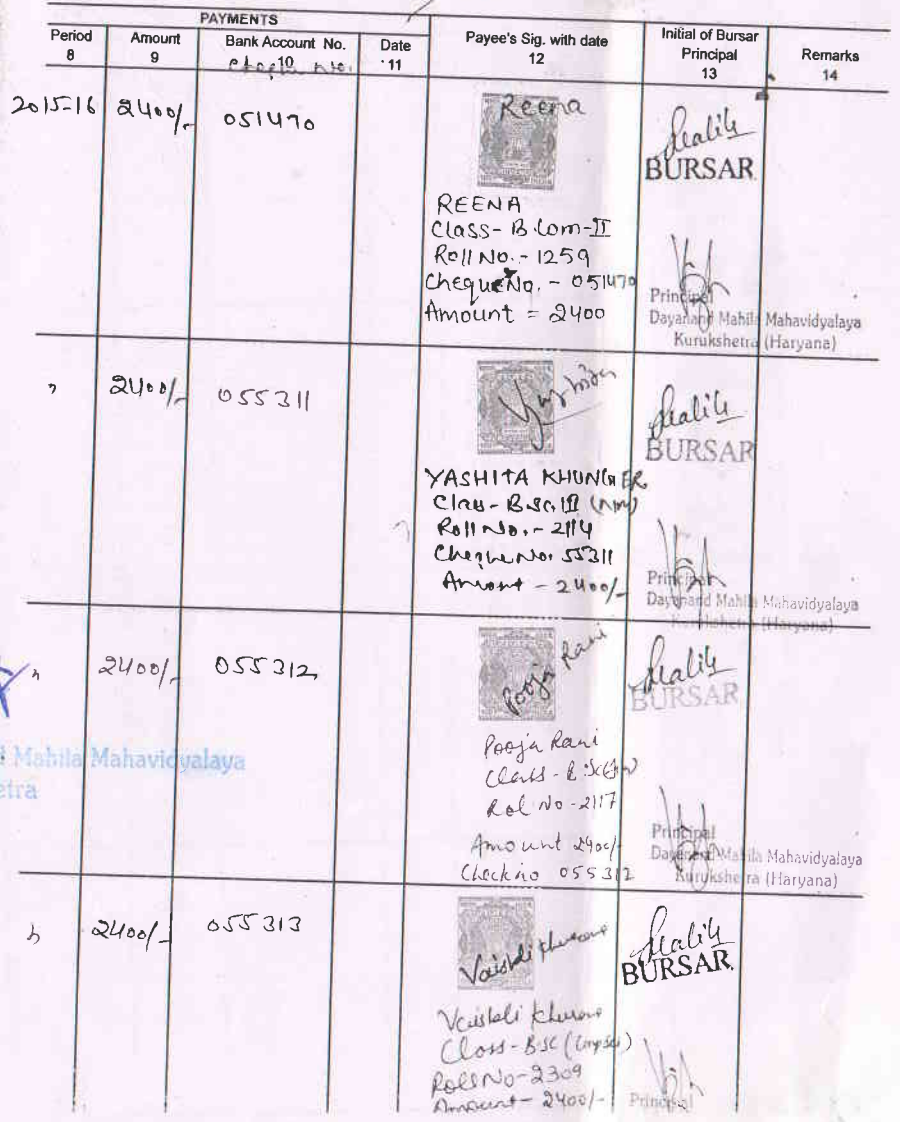 PAYMENTS
Period 8
Amount 9
Bank Account No. 10
Cheque No.
Date 11
Payee's Sig. with date 12
Initial of Bursar Principal 13
Remarks 14
2015-16
2400/-
051470
Reena
REENA
Class- B.Com-II
Roll No. - 1259
Cheque No. - 051470
Amount = 2400
Malik
BURSAR
Principal
Dayanand Mahila Mahavidyalaya
Kurukshetra (Haryana)
"
2400/-
055311
Yashita
YASHITA KHUNGER
Class - B.Sc. III (NM)
Roll No. - 2114
Cheque No. 55311
Amount - 2400/-
Malik
BURSAR
Principal
Dayanand Mahila Mahavidyalaya
Kurukshetra (Haryana)
"
2400/-
055312
Pooja Rani
Pooja Rani
Class - B.Sc
Rol No - 2117
Amount 2400/-
Check no 055312
Malik
BURSAR
Principal
Dayanand Mahila Mahavidyalaya
Kurukshetra (Haryana)
Mahila Mahavidyalaya
etra
"
2400/-
055313
Vaishali Khurana
Vaishali Khurana
Class - BSC (CmpSci)
Roll No - 2309
Amount - 2400/-
Malik
BURSAR
Principal